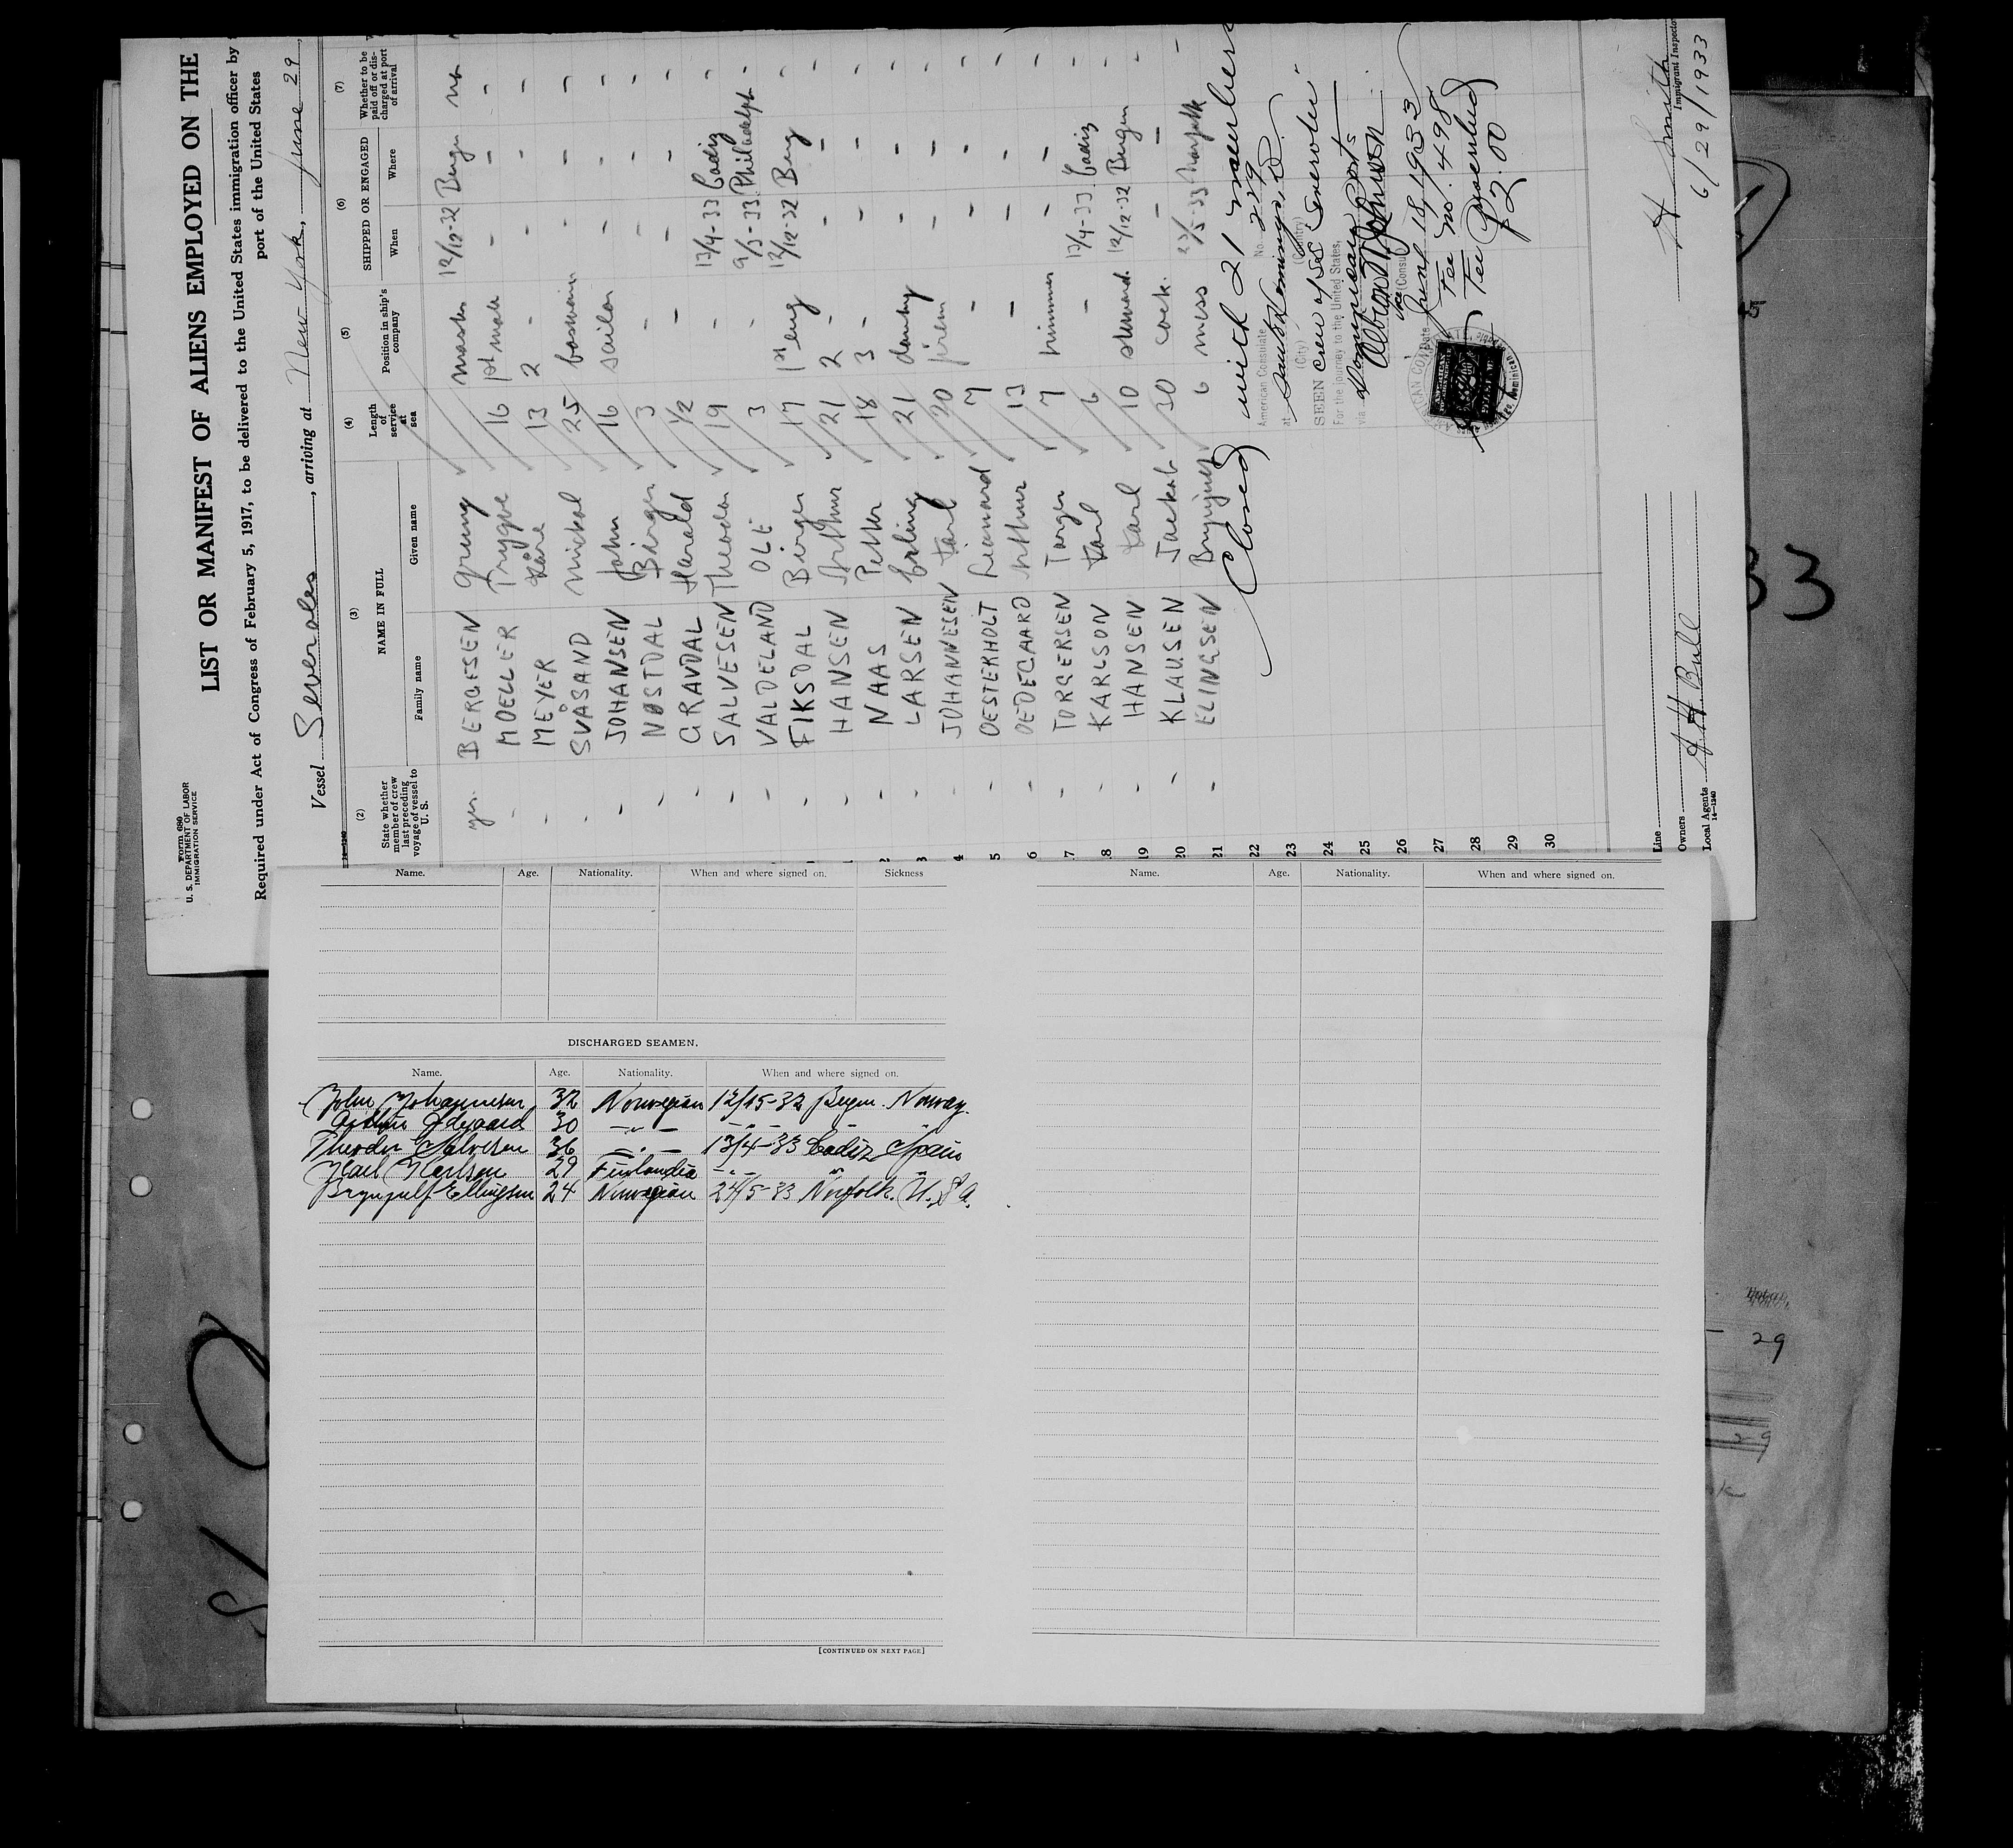 Form 680
U. S. DEPARTMENT OF LABOR
IMMIGRATION SERVICE
LIST OR MANIFEST OF ALIENS EMPLOYED ON THE
Required under Act of Congress of February 5, 1917, to be delivered to the United States immigration officer by
port of the United States
Vessel Severoles, arriving at New York, June 29,
(2) (3) (4) (5) (6) (7)
State whether member of crew last preceding voyage of vessel to U. S.
NAME IN FULL
Family name Given name
Length of service at sea
Position in ship's company
SHIPPED OR ENGAGED
When Where
Whether to be paid off or discharged at port of arrival
yes BERGESEN master 12/12-32 Bergen no
- MOELLER Trygve 16 1st mate - - -
- MEYER Kåre 13 2 - - - -
- SVÅSAND Mickal 25 boatswain - - -
- JOHANSEN John 16 sailor - - -
- NØSTDAL Birger 3 - - - -
- GRAVDAL Harald 1/2 - - - -
- SALVESEN Theodor 19 - 13/4-33 Cadiz -
- VALDELAND OLE 3 - 9/5-33 Philadelph -
- FIKSDAL Birger 17 1st eng 12/12-32 Berg -
- HANSEN Arthur 21 2 - - - -
- NAAS Petter 18 3 - - - -
- LARSEN Erling 21 - - -
- JOHANNESEN Karl 20 firem - - -
- OESTERHOLT Leonard 7 - - - -
- OEDEGAARD Arthur 13 - - - -
- TORGERSEN Torger 7 trimmer - - -
- KARLSON Karl 6 - 13/4-33 Cadiz -
- HANSEN Karl 10 steward 12/12-32 Bergen -
- KLAUSEN Jackob 30 cock - - -
- ELINGSEN Brynjulf 6 mess 23/5-33 -
22
23
24
25
26
27
28
29
30
Closed with 21 members
American Consulate No. 239
at Santo Domingo, D.
(City) (Country)
SEEN crew of SS Severoles
For the journey to the United States,
via Dominican ports
Vice (Consul
Date June 18, 1933
Fee No. 498
Fee $2.00
Line
Owners
Local Agents A H Bull
14-1240
H Smith
Immigrant Inspector
6/29/1933
Name. Age. Nationality. When and where signed on. Sickness
DISCHARGED SEAMEN.
Name. Age. Nationality. When and where signed on.
John Johannesen 32 Norwegian 12/15-32 Bergen. Norway.
Arthur Ødegaard 30 -"- -"- "
Theodor Salvesen 36 -"- 13/4-33 Cadiz Spain
Karl Karlson 29 Finlandia -"- " "
Brynjulf Ellingsen 24 Norwegian 24/5-33 Norfolk. U.S.A.
[CONTINUED ON NEXT PAGE]
Name. Age. Nationality. When and where signed on.
33
45
29
29